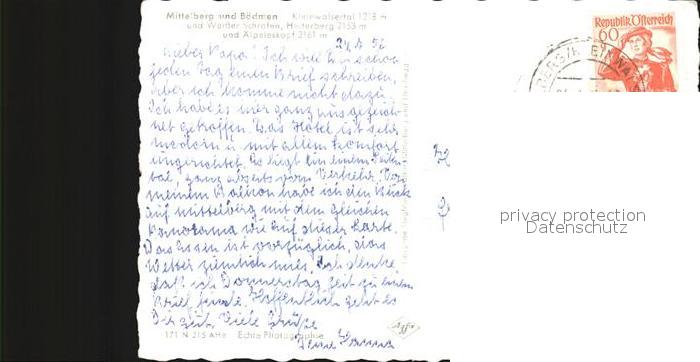 Mittelberg und Bödmen Kleinwalsertal 1218 m
und Weißer Schrofen, Heiterberg 2153 m
und Alpeleskopf 2161 m
Lieber Papa! Ich will Dir schon
jeden Tag einen Brief schreiben,
aber ich komme nicht dazu.
Ich habe es hier ganz ausgezeich
net getroffen. Das Hotel ist sehr
modern u. mit allem Komfort
eingerichtet. Es liegt in einem Seiten
tal, ganz abseits vom Verkehr. Von
meinem Balkon habe ich den Blick
auf Mittelberg mit dem gleichen
Panorama wie auf dieser Karte.
Das Essen ist vorzüglich, das
Wetter ziemlich mies. Ich denke,
daß ich Donnerstag Zeit zu einem
Brief finde. Hoffentlich geht es
Dir gut. Viele Grüße
Deine Hanna
171 N 215 AHe Echte Photographie
Agfa
Republik Österreich
60
privacy protection
Datenschutz